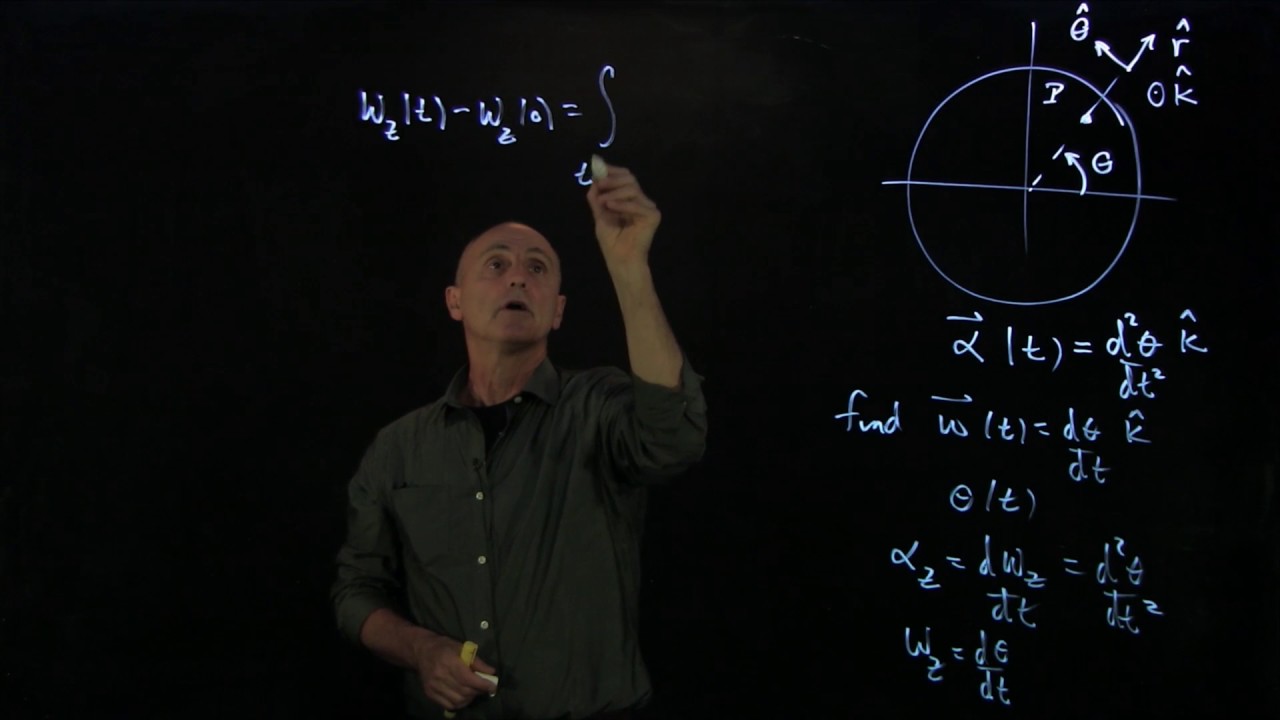 ω_z(t) − ω_z(0) = ∫
t
θ̂
r̂
P
⊙ k̂
θ
α⃗(t) = d²θ/dt² k̂
find ω⃗(t) = dθ/dt k̂
θ(t)
α_z = dω_z/dt = d²θ/dt²
ω_z = dθ/dt